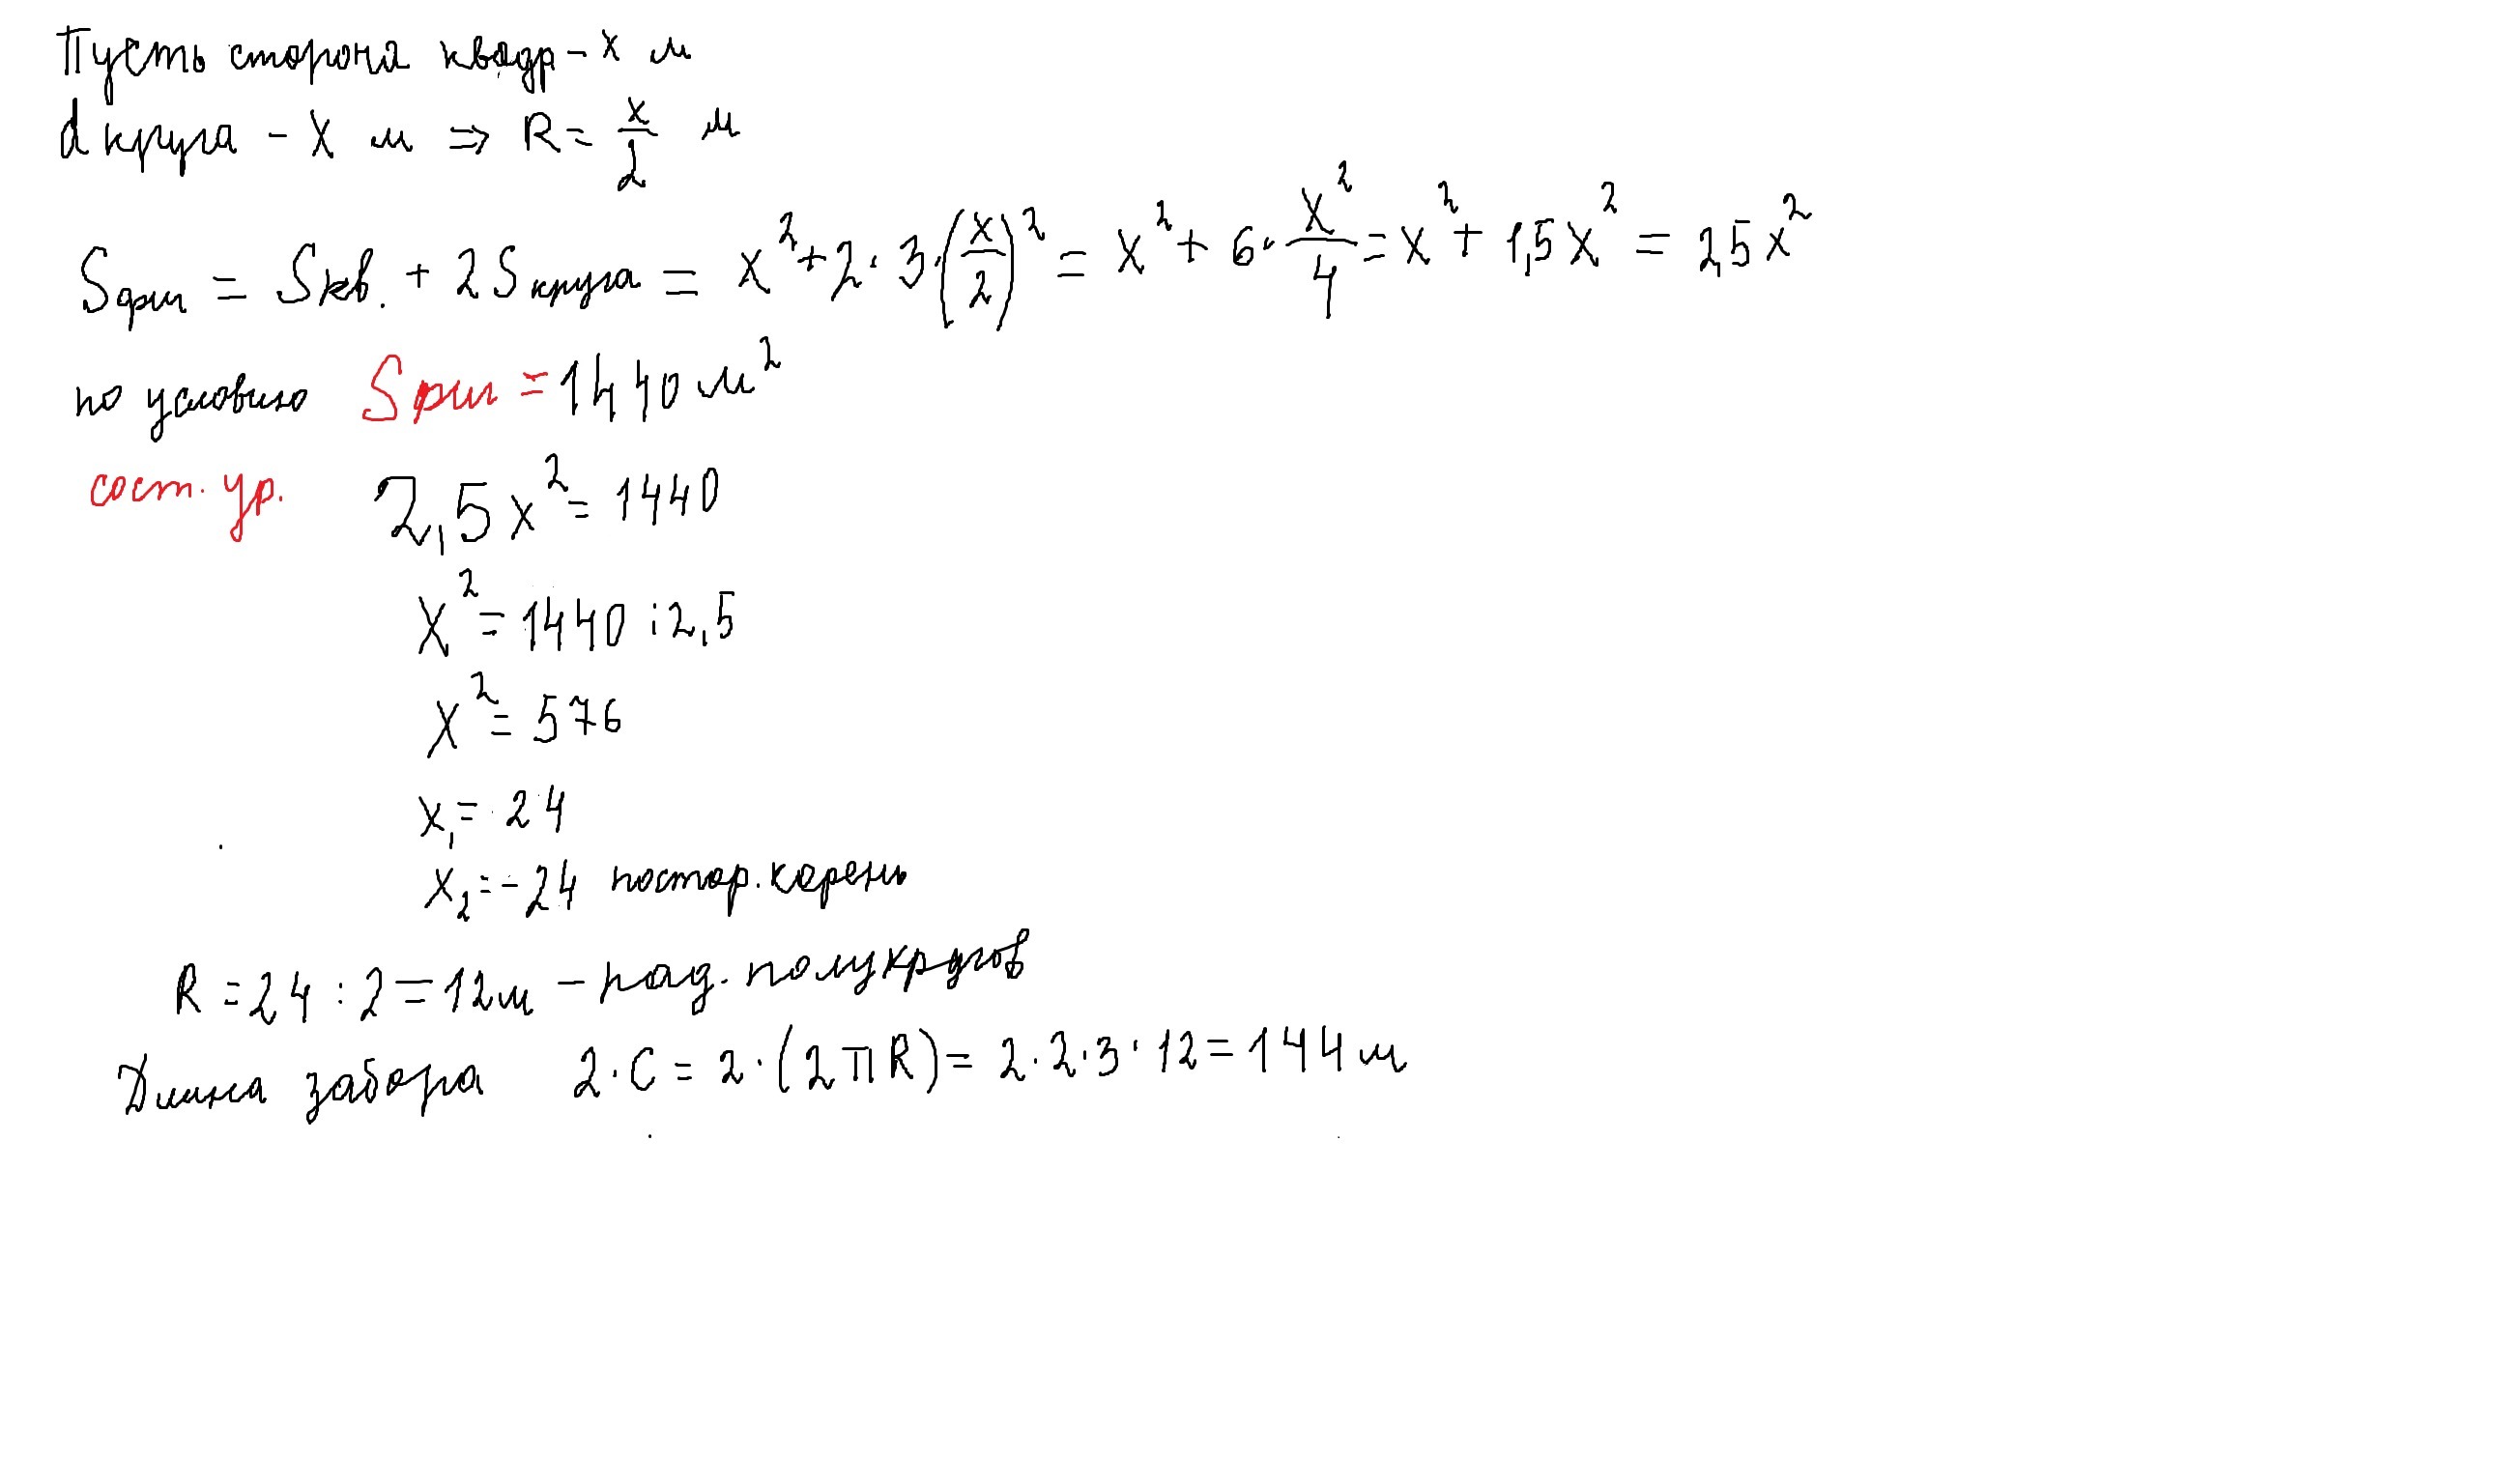 Пусть сторона квадр - x м
d круга - x м ⇒ R = x/2 м
Sфиг = Sкв. + 2Sкруга = x² + 2 · 3 · (x/2)² = x² + 6 · x²/4 = x² + 1,5x² = 2,5x²
по условию Sфиг = 1440 м²
сост. ур. 2,5x² = 1440
x² = 1440 : 2,5
x² = 576
x₁ = 24
x₂ = -24 постор. корень
R = 24 : 2 = 12 м - рад. полукругов
Длина забора 2 · C = 2 · (2πR) = 2 · 2 · 3 · 12 = 144 м